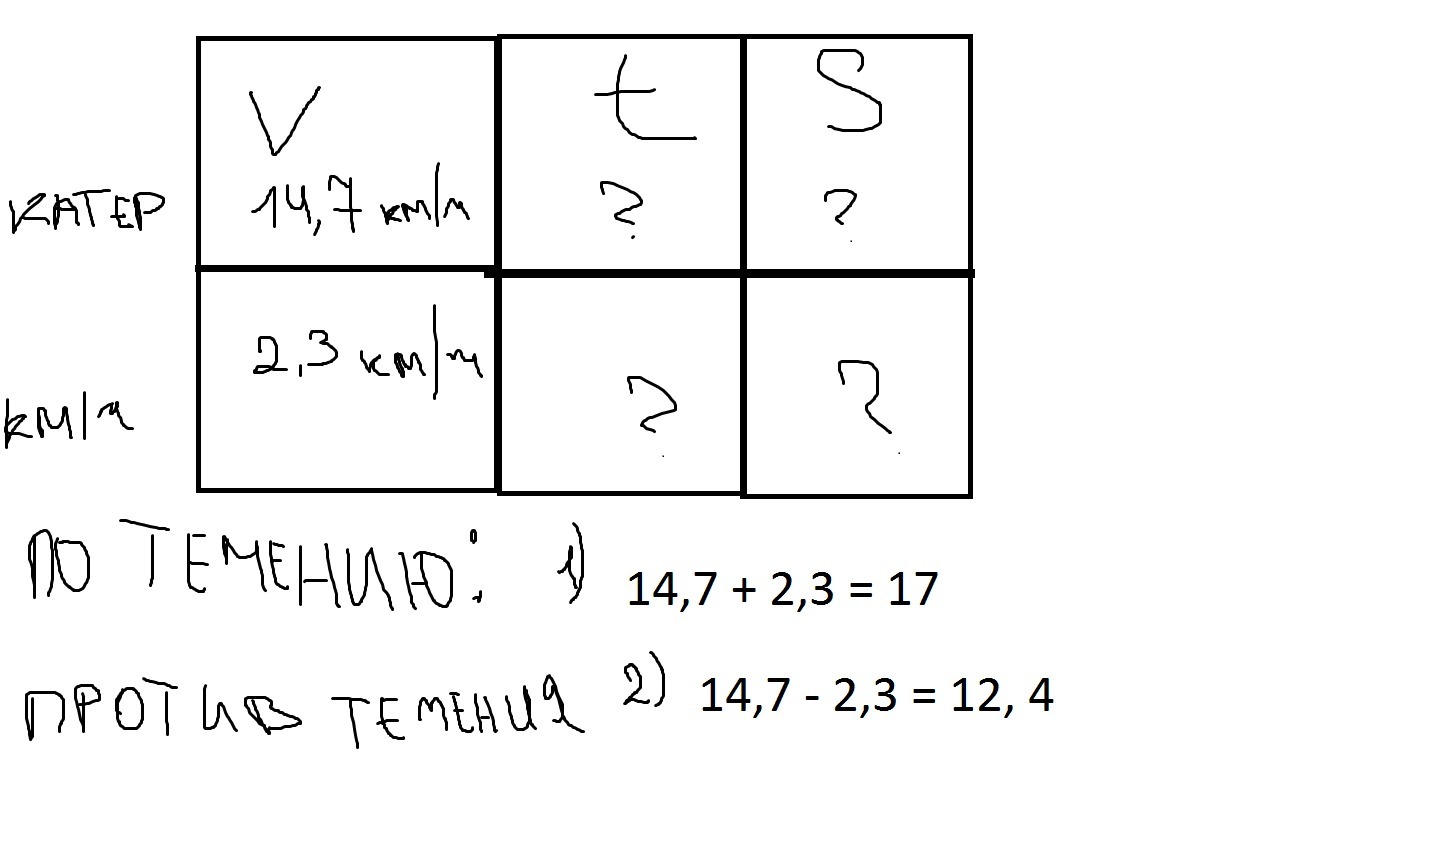 V t S
КАТЕР 14,7 км/ч ? ?
км/ч 2,3 км/ч ? ?
ПО ТЕЧЕНИЮ: 1) 14,7 + 2,3 = 17
ПРОТИВ ТЕЧЕНИЯ 2) 14,7 - 2,3 = 12, 4